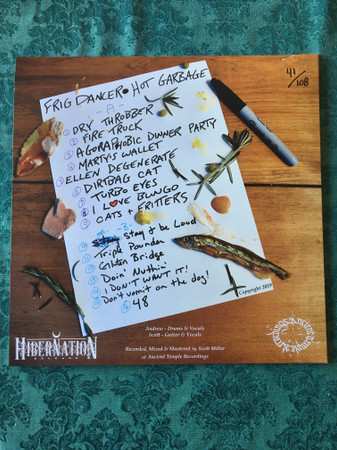 FRIG DANCER • HOT GARBAGE
41/108
-A-
① DRY THROBBER
② FIRE TRUCK
③ AGORAPHOBIC DINNER PARTY
④ MARTY'S WALLET
⑤ ELLEN DEGENERATE
⑥ DIRTBAG CAT
⑦ TURBO EYES
⑧ I LOVE BUNGO
⑨ CATS & FRITTERS
-B-
stay & be Loud
Triple Pounder
Gilden Bridge
Doin' Nuthin'
I DON'T WANT IT!
Don't vomit on the dog!
48
Copyright 2019
HIBERNATION
RECORDS
Andrew - Drums & Vocals
Scott - Guitar & Vocals
Recorded, Mixed & Mastered by Scott Miller
at Ancient Temple Recordings